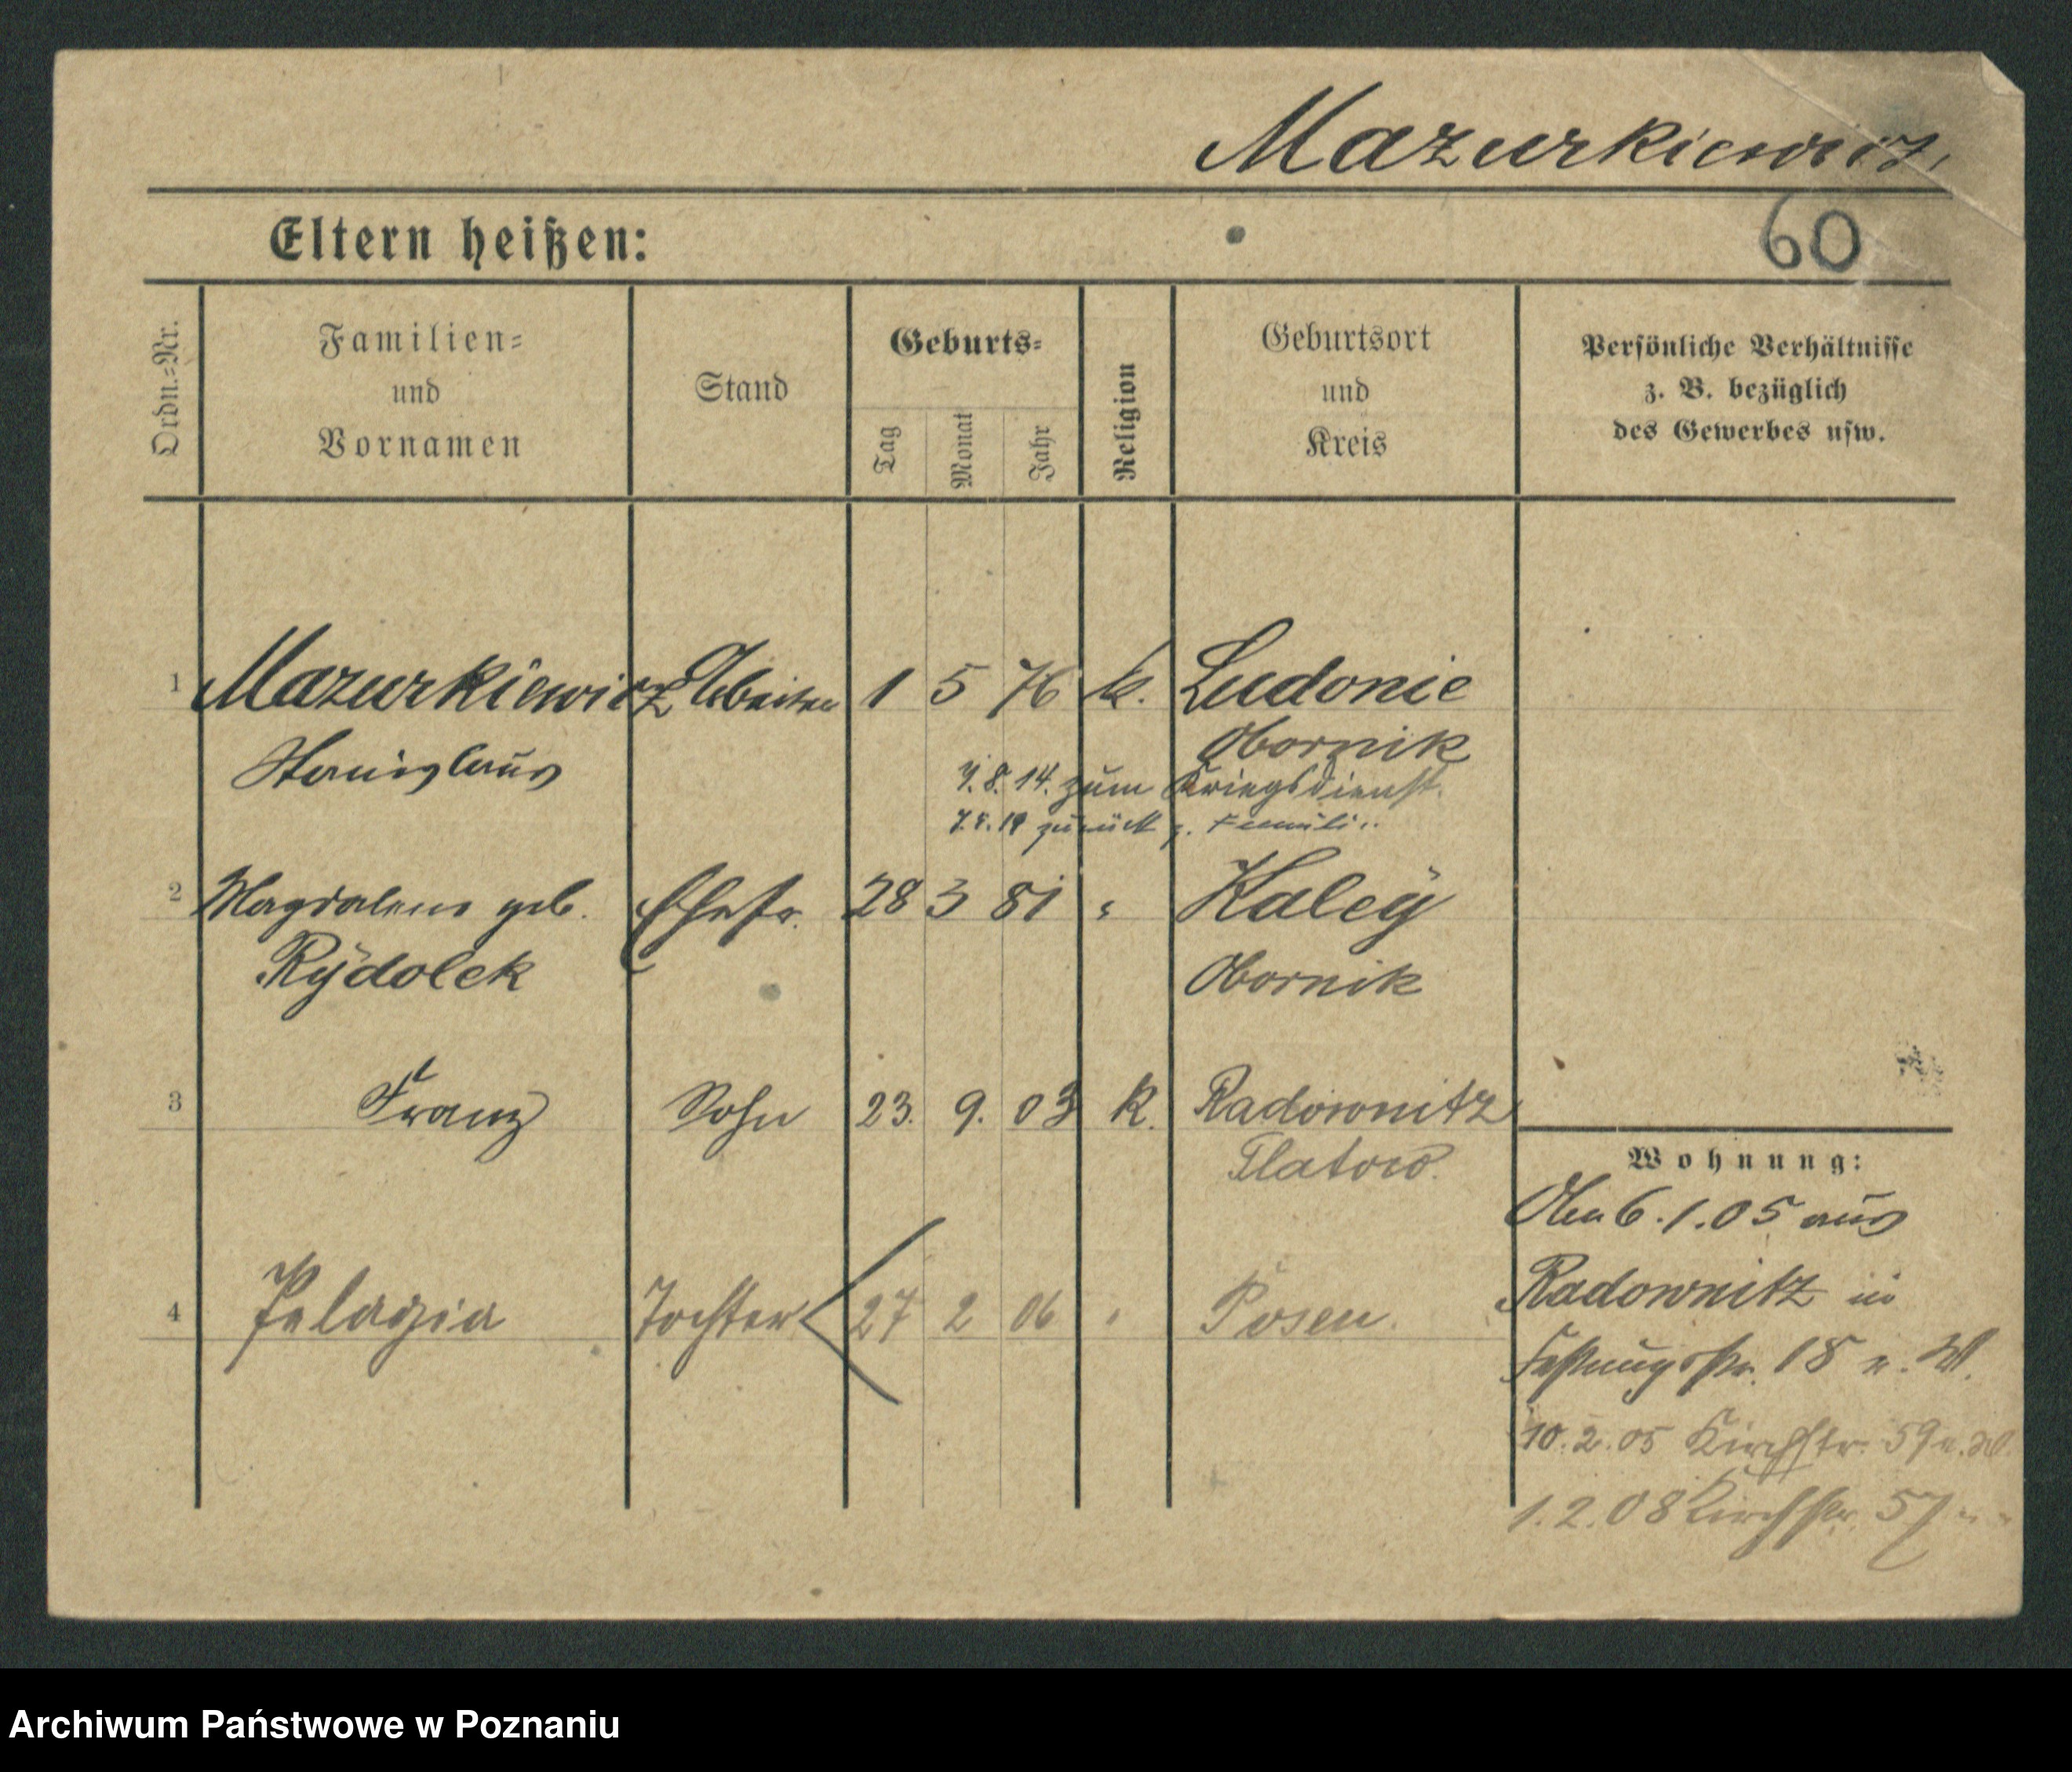 Mazurkiewicz,
Eltern heißen:
60
Ordn.=Nr.
Familien=
und
Vornamen
Stand
Geburts=
Tag
Monat
Jahr
Religion
Geburtsort
und
Kreis
Persönliche Verhältnisse
z. B. bezüglich
des Gewerbes usw.
1 Mazurkiewicz Arbeiter 1 5 76 k. Ludonie
Stanislaus Obornik
8. 14. zum Kriegsdienst.
zurück z. Famili
2 Magdalena geb. Ehefr. 28 3 81 " Kaley
Rÿdolek Obornik
3 Franz Sohn 23. 9. 03 k. Radownitz
Flatow.
Wohnung:
6.1.05 aus
Radownitz in
4 Pelagia Tochter 27 2 06 " Posen.
Festungsstr. 18 n. W.
10.2.05 Kirchstr. 59 n. W.
1.2.08 Kirchstr. 57 " "
Archiwum Państwowe w Poznaniu